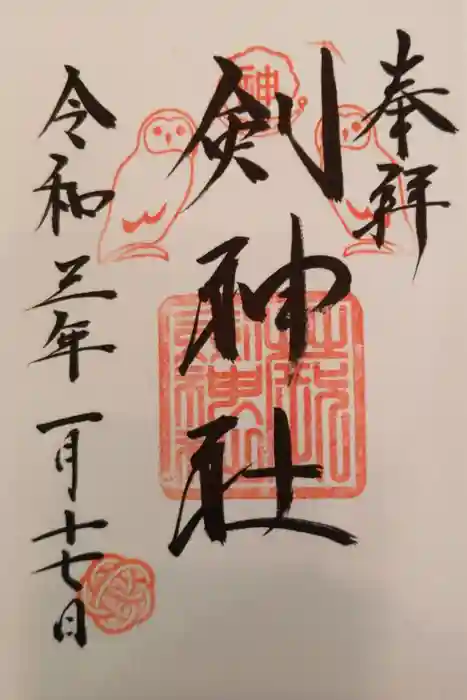 奉拝
剣神社
令和三年一月十七日
神